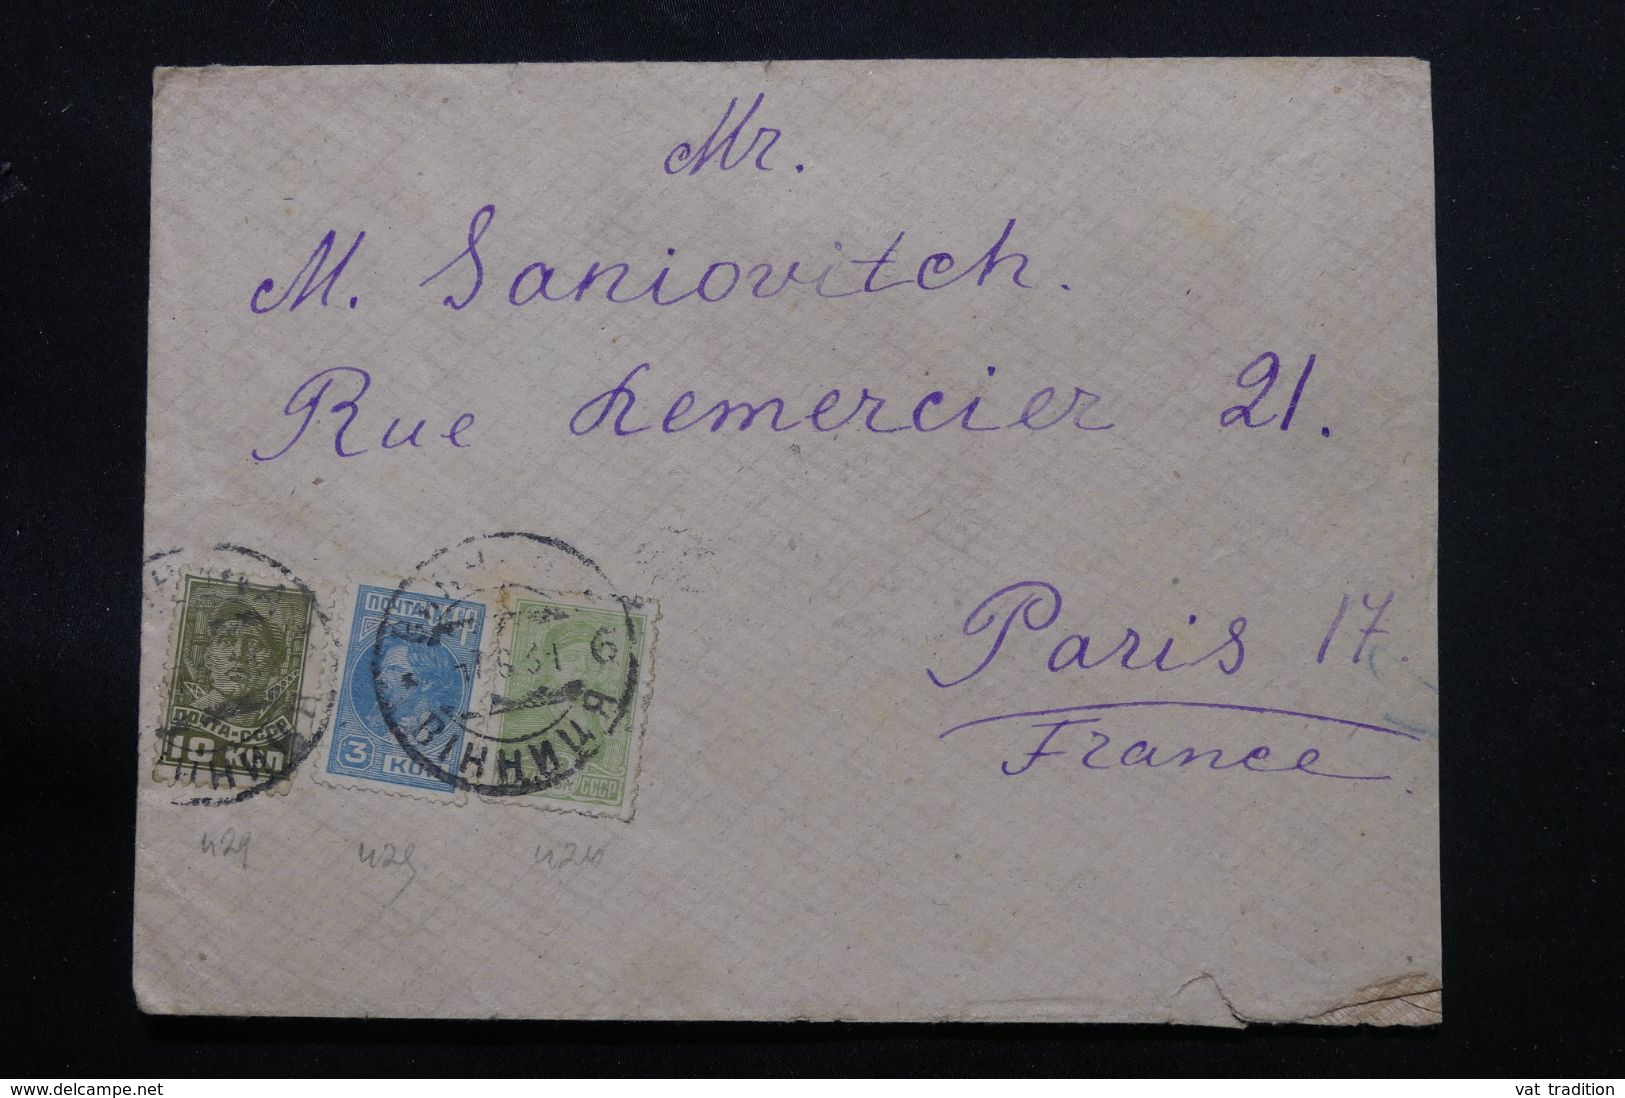 Mr.
M. Saniovitch.
Rue Lemercier 21.
Paris 17.
France
ПОЧТА-СССР
10 КОП
ПОЧТА СССР
3 КОП
СССР
6
ВІННИЦЯ
429
429
www.delcampe.net
vat tradition